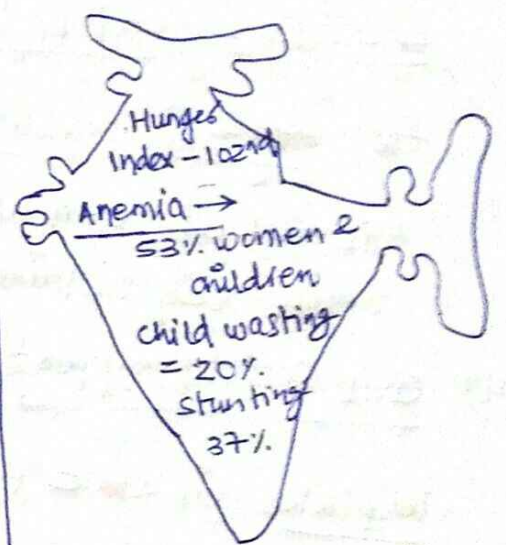 Hunger
Index - 102nd
Anemia →
53% women &
children
child wasting
= 20%.
stunting
37%.